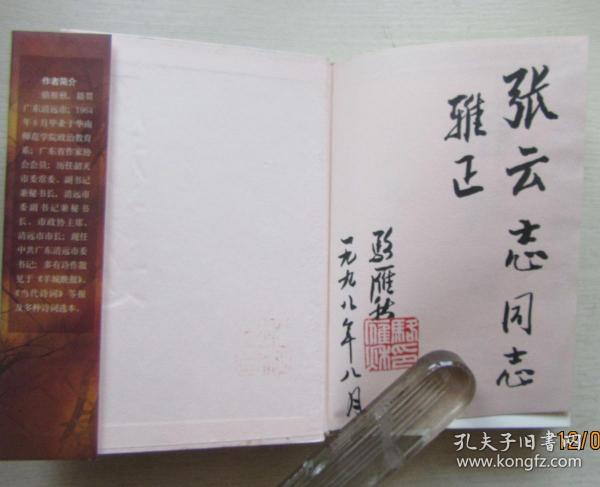 作者简介
骆雁秋，籍贯
广东清远市；1964
年8月毕业于华南
师范学院政治教育
系；广东省作家协
会会员；历任韶关
市委常委、副书记
兼秘书长，清远市
委副书记兼秘书
长、市政协主席、
清远市市长；现任
中共广东清远市委
书记；多有诗作散
见于《羊城晚报》、
《当代诗词》等报
及多种诗词选本。
张云志同志
雅正
骆雁秋
一九九八年八月
12/0
孔夫子旧书网
www.kongfz.com